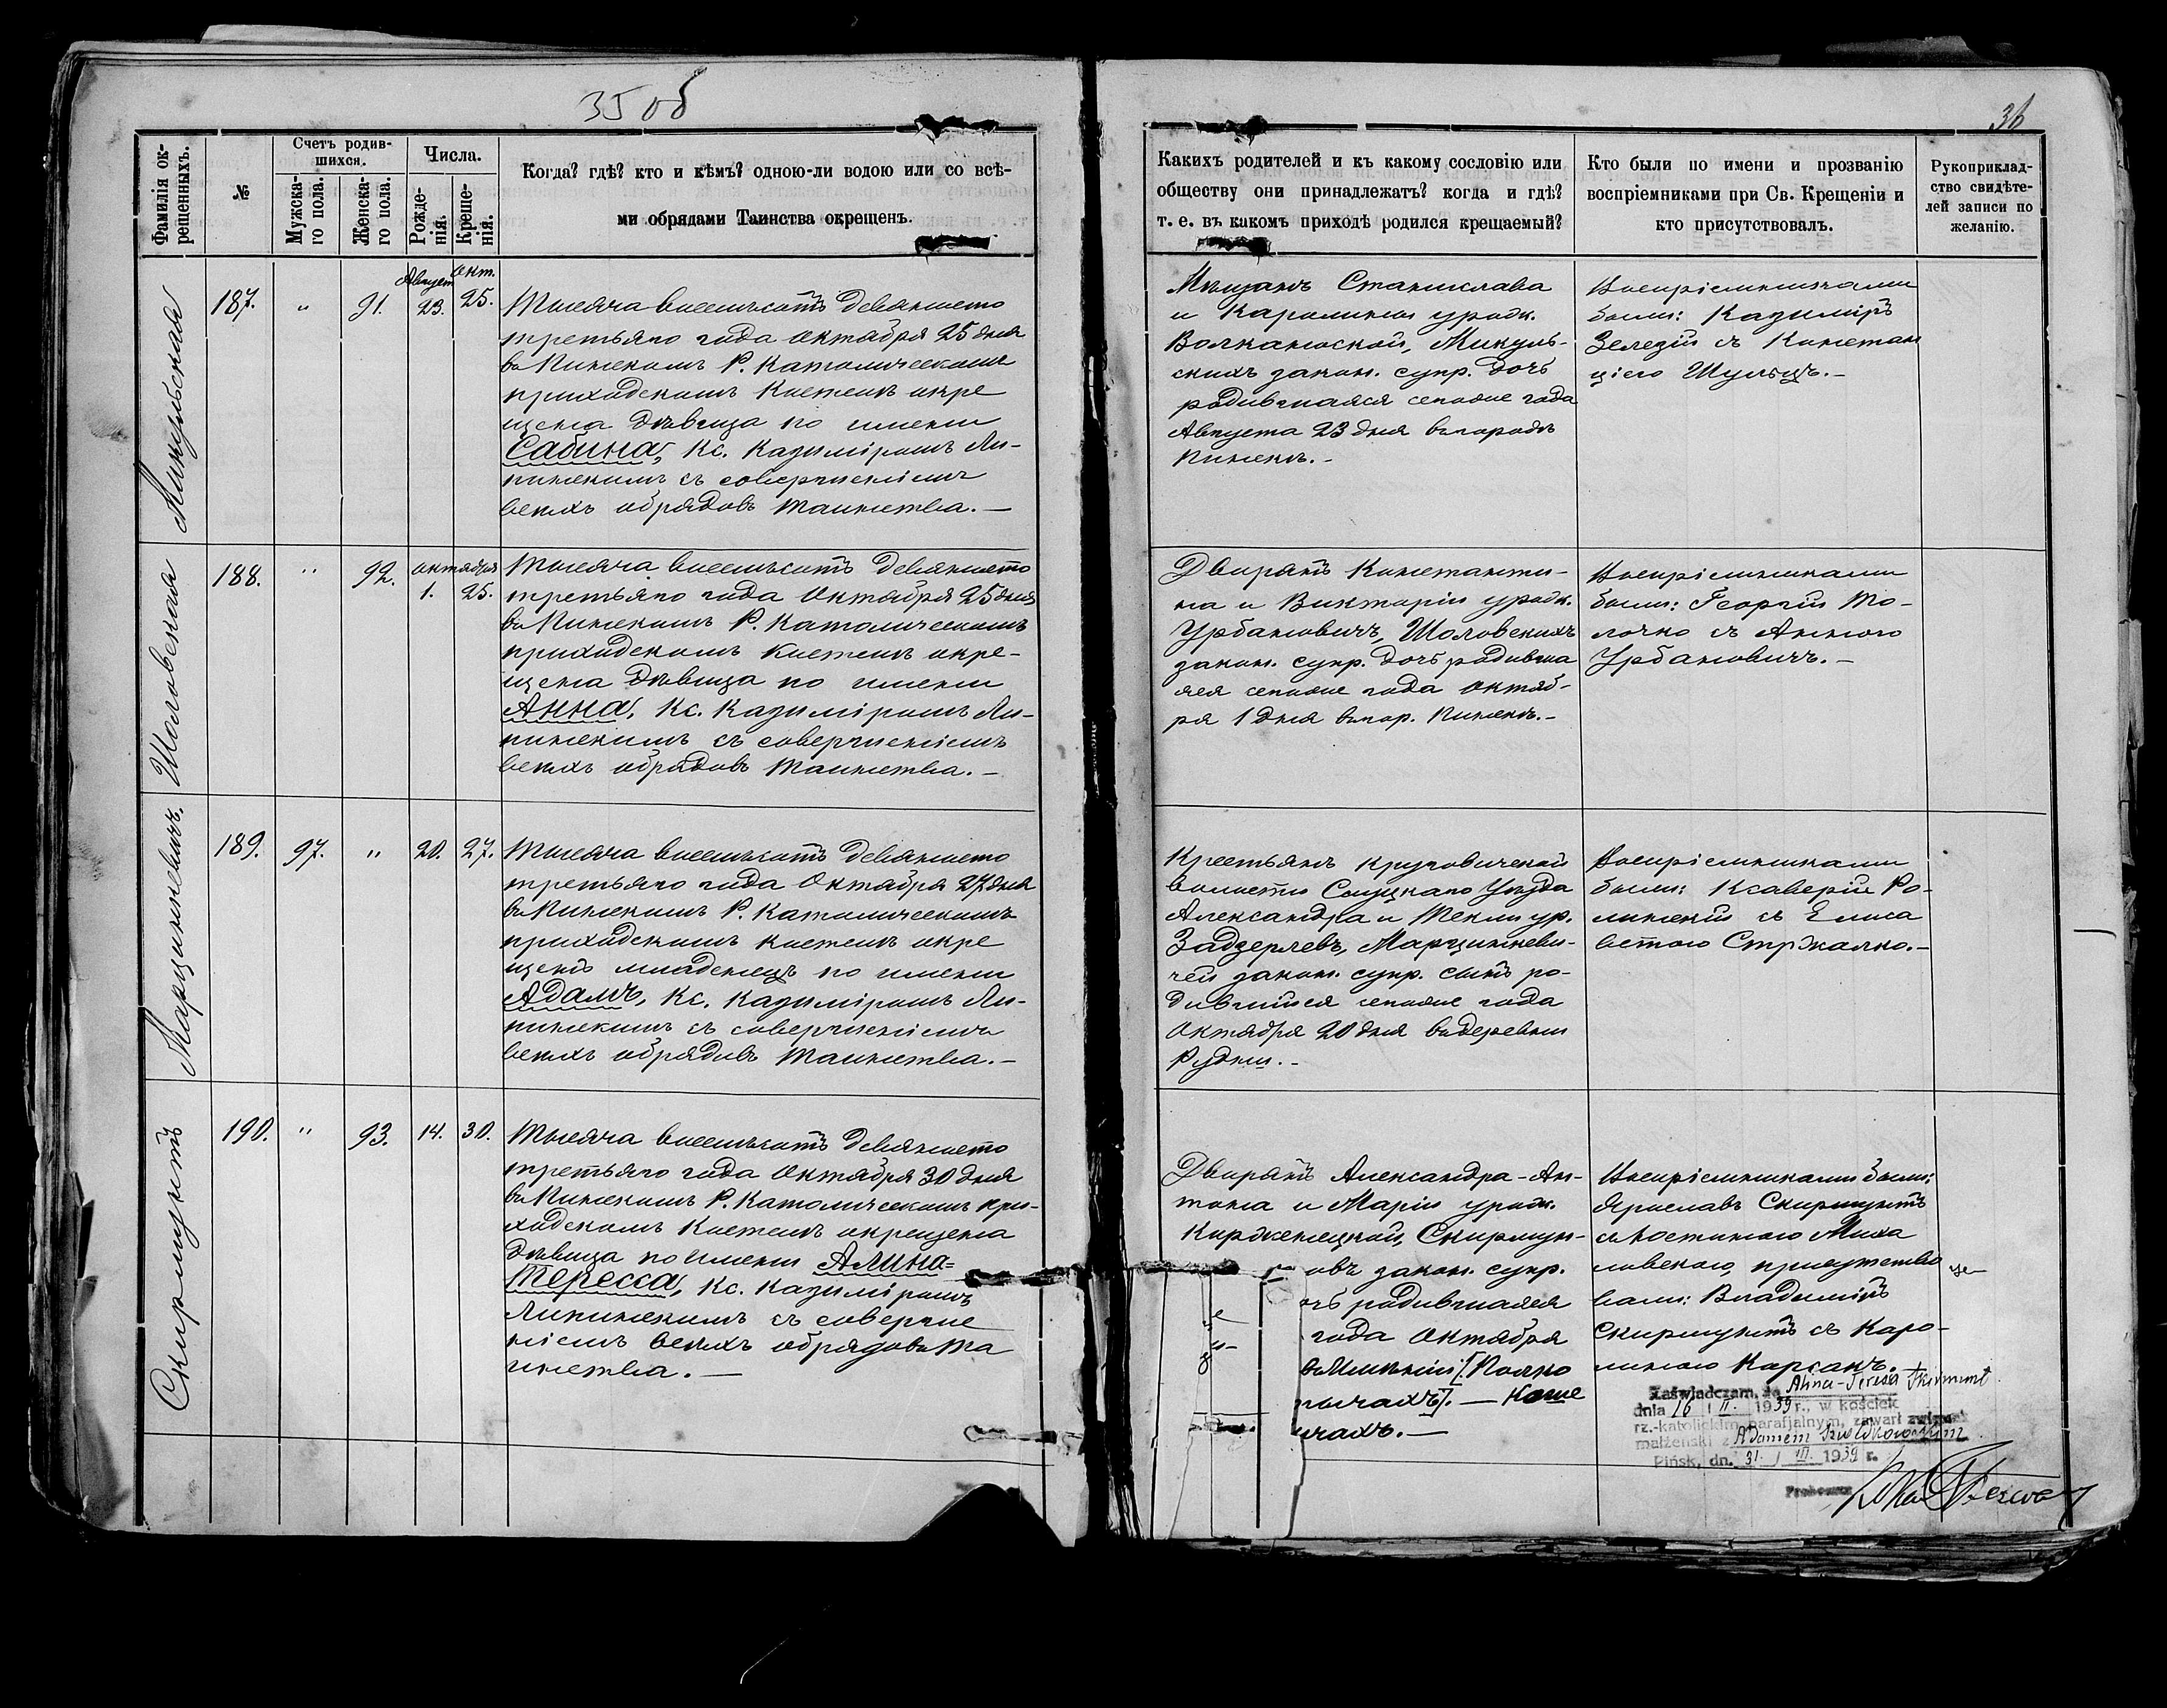 35 об
36
Фамилія ок-
рещенныхъ.
№
Счетъ родив-
шихся.
Мужска-
го пола.
Женска-
го пола.
Числа.
Рожде-
нія.
Креще-
нія.
Когда? гдѣ? кто и кѣмъ? одною-ли водою или со всѣ-
ми обрядами Таинства окрещенъ.
Какихъ родителей и къ какому сословію или
обществу они принадлежатъ? когда и гдѣ?
т. е. въ какомъ приходѣ родился крещаемый?
Кто были по имени и прозванію
воспріемниками при Св. Крещеніи и
кто присутствовалъ.
Рукоприклад-
ство свидѣте-
лей записи по
желанію.
Микульская
187.
"
91.
Август
23.
Окт.
25.
Тысяча восемьсотъ девяносто
третьяго года Октября 25 дня
въ Пинскомъ Р. Католическомъ
приходскомъ Костелѣ окре
щена дѣвица по имени
Сабина, Кс. Казиміромъ Ли-
пинскимъ съ совершеніемъ
всѣхъ обрядовъ Таинства. —
Мѣщанъ Станислава
и Каролины урожд.
Волканоской, Микуль-
скихъ закон. супр. дочь
родившаяся сего же года
Августа 23 дня въ городѣ
Пинскѣ. –
были: Казиміръ
Зелезій съ Констан
ціею Шульцъ. –
Шоловская
188.
"
92.
Октября
1.
25.
Тысяча восемьсотъ девяносто
третьяго года Октября 25 дня
въ Пинскомъ Р. Католическомъ
приходскомъ Костелѣ окре-
щена дѣвица по имени
Анна, Кс. Казиміромъ Ли-
пинскимъ съ совершеніемъ
всѣхъ обрядовъ Таинства. –
Дворянъ Константи-
на и Викторіи урожд.
Урбановичъ, Шоловскихъ
закон. супр. дочь родивша
яся сего же года Октяб-
ря 1 дня въ гор. Пинскѣ. –
Воспріемниками
были: Георгій То-
лочко съ Анною
Урбановичъ. –
Марцинкевичъ.
189.
97.
"
20.
27.
Тысяча восемьсотъ девяносто
третьяго года Октября 27 дня
въ Пинскомъ Р. Католическомъ
приходскомъ Костелѣ окре
щенъ младенецъ по имени
Адамъ, Кс. Казиміромъ Ли-
пинскимъ съ совершеніемъ
всѣхъ обрядовъ Таинства. –
Крестьянъ Круговичской
волости Слуцкаго Уѣзда
Александра и Теклы ур.
Задзерлевъ, Марцинкеви-
чей закон. супр. сынъ ро-
дившійся сего же года
Октября 20 дня въ деревни
Рудни. –
Воспріемниками
были: Ксаверій Ро-
линскій съ Елиса
ветою Стржалко. –
Скирмунтъ
190.
"
93.
14.
30.
Тысяча восемьсотъ девяносто
третьяго года Октября 30 дня
въ Пинскомъ Р. Католическомъ при-
ходскомъ Костелѣ окрещена
дѣвица по имени Алина=
Тересса, Кс. Казиміромъ
Липинскимъ съ соверше
ніемъ всѣхъ обрядовъ Та
инства. —
Дворянъ Александра-Ан-
тона и Маріи урож.
Кирдженецкой, Скирмун-
овъ закон. супр.
очь родившаяся
года Октября
въ Имѣніи [Порѣ
чахъ]. —
чахъ. —
Воспріемниками были:
Ярославъ Скирмунтъ
съ Костиною Миха
ловскою, присутство
вали: Владиміръ
Скирмунтъ съ Каро-
линою Корсакъ.
Zaświadczam, że Alina-Teresa Skirmunt
dnia 16 / II. 1939 r., w kościele
rz.-katolickim parafjalnym, zawarł związek
małżeński z Adamem
Pińsk, dn. 31. / III. 1939 r.
Proboszcz